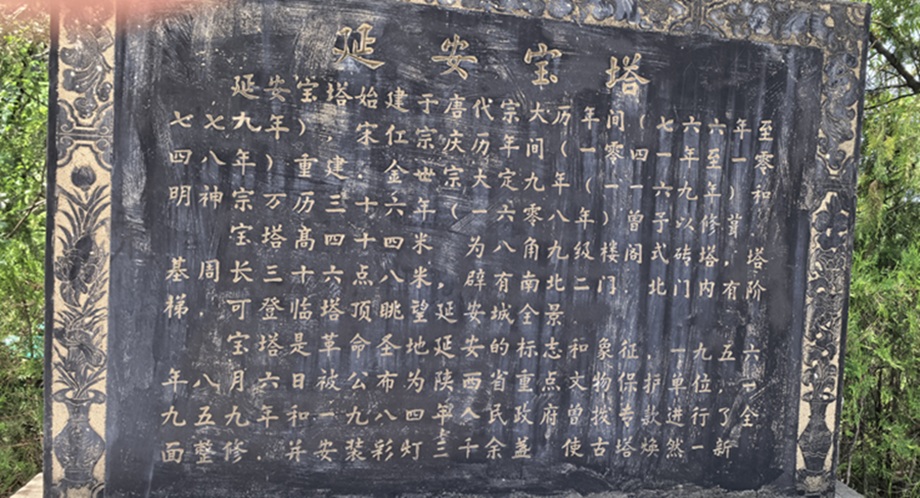 延安宝塔
延安宝塔始建于唐代宗大历年间(七六六年至
七七九年),宋仁宗庆历年间(一零四一年至一零
四八年)重建.金世宗大定九年(一一六九年)和
明神宗万历三十六年(一六零八年)曾予以修葺,
宝塔高四十四米,为八角九级楼阁式砖塔.塔
基周长三十六点八米,辟有南北二门.北门内有阶
梯.可登临塔顶眺望延安城全景.
宝塔是革命圣地延安的标志和象征.一九五六
年八月六日被公布为陕西省重点文物保护单位.一
九五九年和一九八四年人民政府曾拨专款进行了全
面整修.并安装彩灯三千余盏 使古塔焕然一新